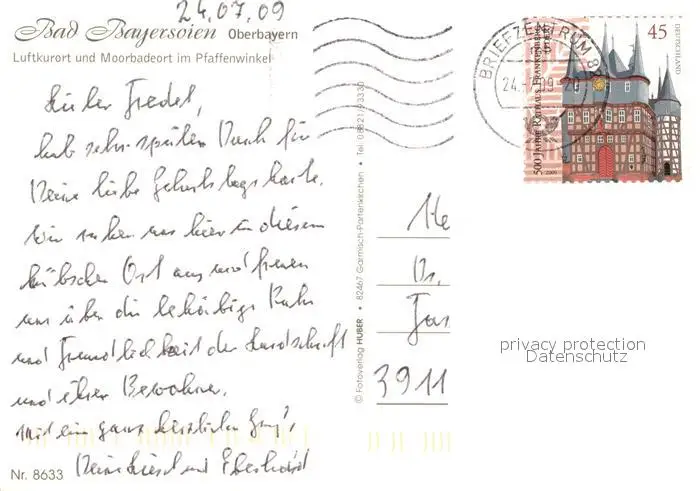 24.07.09
Bad Bayersoien Oberbayern
Luftkurort und Moorbadeort im Pfaffenwinkel
Lieber Friedel,
hab sehr späten Dank für
Deine liebe Geburtstagskarte.
Wir ruhen uns hier in diesem
hübschen Ort aus und freuen
uns über die behäbige Ruhe
und Freundlichkeit der Landschaft
und ihrer Bewohner.
Mit ein ganz herzlichen Gruß
Deine Liesel und Eberhard
Nr. 8633
© Fotoverlag HUBER • 82467 Garmisch-Partenkirchen • Tel. 08821/93330
BRIEFZENTRUM 8
24.-7.09-20
500 JAHRE RATHAUS FRANKENBERG
45
DEUTSCHLAND
He
Dr.
3911
privacy protection
Datenschutz